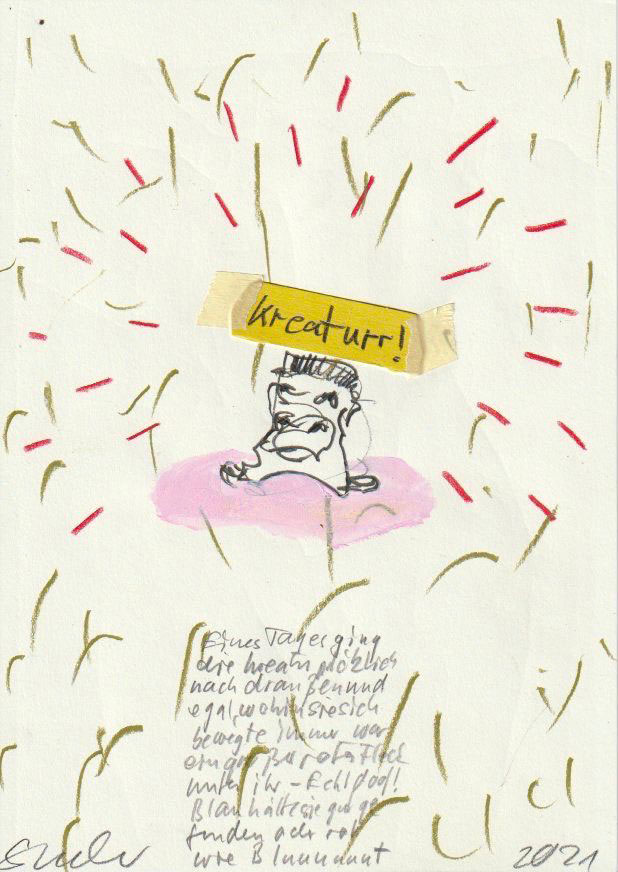 kreaturr!
Eines Tages ging
die kreatur plötzlich
nach draußen und
egal, wohin sie sich
bewegte immer war
ein großer rosa Fleck
unter ihr – Echt doof!
Blau hätte sie gut ge
funden oder rot
wie Bluuuuuut
2021